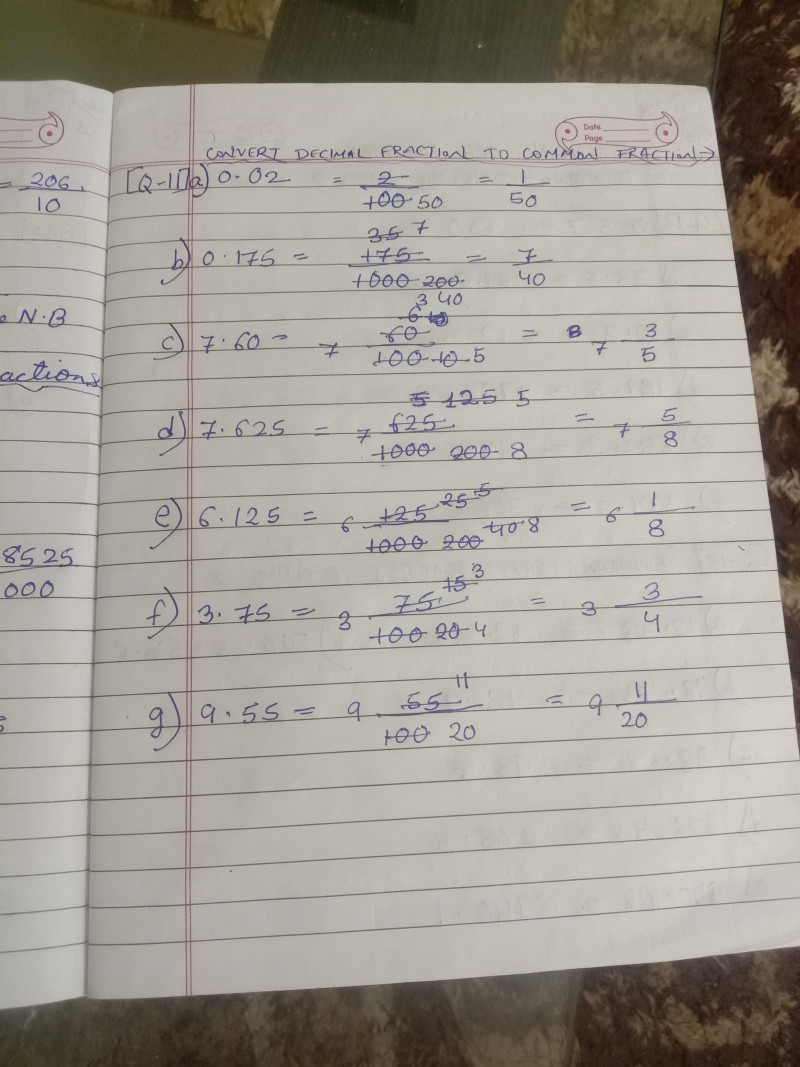 Date
Page
CONVERT DECIMAL FRACTION TO COMMON FRACTION→
= 206
10
[Q-1] a) 0.02 = 2 = 1
100 50 50
35 7
b) 0.175 = 175 = 7
1000 200 40
40
e N.B
3
6
c) 7.60 = 7 60 = 7 3
100 10 5 5
actions
5 125 5
d) 7.625 = 7 625 = 7 5
1000 200 8 8
e) 6.125 = 6 125 25 5 = 6 1
1000 200 40 8 8
8525
000
f) 3.75 = 3 75 15 3 = 3 3
100 20 4 4
g) 9.55 = 9 55 11 = 9 11
100 20 20